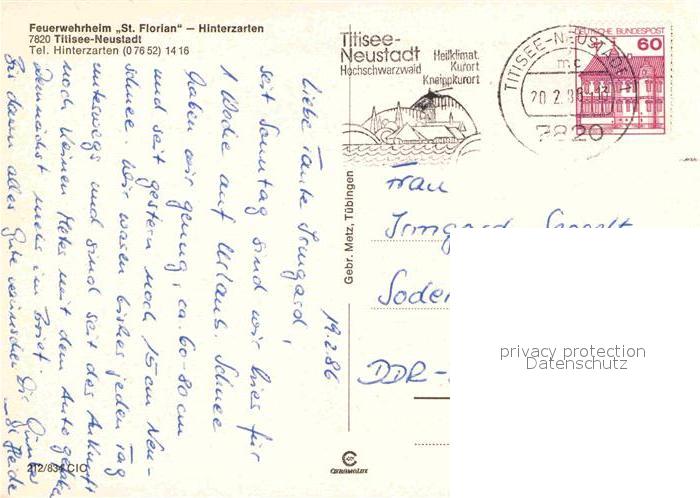 Feuerwehrheim „St. Florian“ – Hinterzarten
7820 Titisee-Neustadt
Tel. Hinterzarten (0 76 52) 14 16
Titisee-
Neustadt
Hochschwarzwald
Heilklimat.
Kurort
Kneippkurort
TITISEE-NEUSTADT
mc
20.2.86
7820
DEUTSCHE BUNDESPOST
60
19.2.86
Liebe Tante Irmgard,
seit Sonntag sind wir hier für
1 Woche auf Urlaub. Schnee
haben wir genug, ca. 60-80 cm
und seit gestern noch 15 cm Neu-
schnee. Wir waren bisher jeden Tag
unterwegs und sind seit der Ankunft
noch keinen Meter mit dem Auto
Demnächst mehr im Brief.
Bis dann alles Gute wünschen Dir Günter
Heide
Gebr. Metz, Tübingen
Frau
Irmgard
Soden
DDR-
212/834 CIO
privacy protection
Datenschutz